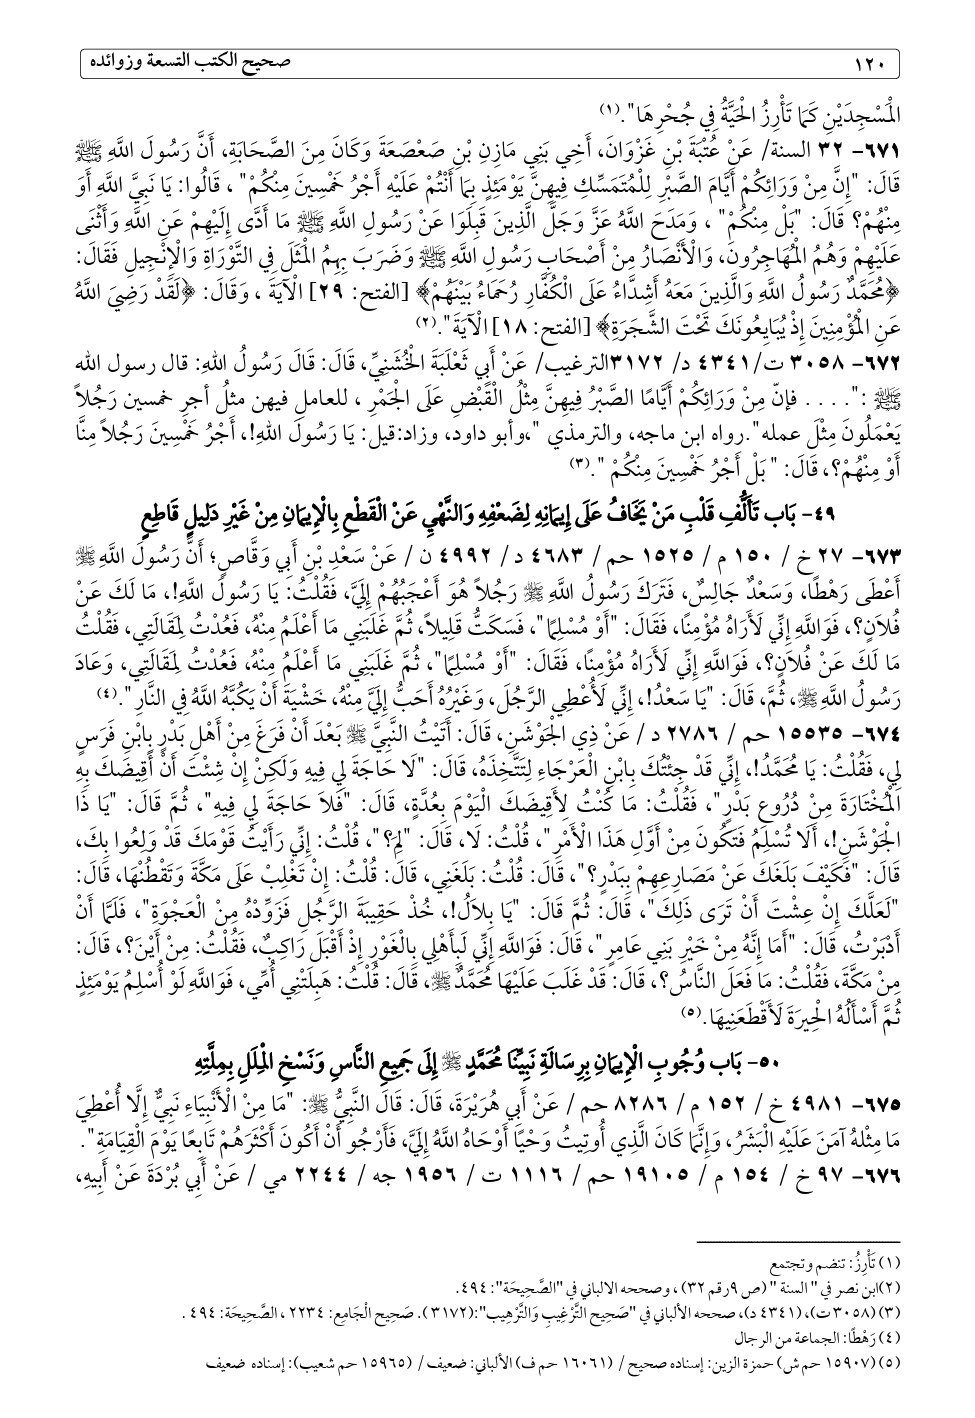 ١٢٠ صحيح الكتب التسعة وزوائده
الْمَسْجِدَيْنِ كَمَا تَأْرِزُ الْحَيَّةُ فِي جُحْرِهَا".(١)
٦٧١- ٣٢ السنة/ عَنْ عُتْبَةَ بْنِ غَزْوَانَ، أَخِي بَنِي مَازِنِ بْنِ صَعْصَعَةَ وَكَانَ مِنَ الصَّحَابَةِ، أَنَّ رَسُولَ اللَّهِ ﷺ
قَالَ: "إِنَّ مِنْ وَرَائِكُمْ أَيَّامَ الصَّبْرِ لِلْمُتَمَسِّكِ فِيهِنَّ يَوْمَئِذٍ بِمَا أَنْتُمْ عَلَيْهِ أَجْرُ خَمْسِينَ مِنْكُمْ" ، قَالُوا: يَا نَبِيَّ اللَّهِ أَوَ
مِنْهُمْ؟ قَالَ: "بَلْ مِنْكُمْ" ، وَمَدَحَ اللَّهُ عَزَّ وَجَلَّ الَّذِينَ قَبِلَوَا عَنْ رَسُولِ اللَّهِ ﷺ مَا أَدَّى إِلَيْهِمْ عَنِ اللَّهِ وَأَثْنَى
عَلَيْهِمْ وَهُمُ الْمُهَاجِرُونَ، وَالْأَنْصَارُ مِنْ أَصْحَابِ رَسُولِ اللَّهِ ﷺ وَضَرَبَ بِهِمُ الْمَثَلَ فِي التَّوْرَاةِ وَالْإِنْجِيلِ فَقَالَ:
﴿مُحَمَّدٌ رَسُولُ اللَّهِ وَالَّذِينَ مَعَهُ أَشِدَّاءُ عَلَى الْكُفَّارِ رُحَمَاءُ بَيْنَهُمْ﴾ [الفتح: ٢٩] الْآيَةَ ، وَقَالَ: ﴿لَقَدْ رَضِيَ اللَّهُ
عَنِ الْمُؤْمِنِينَ إِذْ يُبَايِعُونَكَ تَحْتَ الشَّجَرَةِ﴾ [الفتح: ١٨] الْآيَةَ".(٢)
٦٧٢- ٣٠٥٨ ت/ ٤٣٤١ د/ ٣١٧٢الترغيب/ عَنْ أَبِي ثَعْلَبَةَ الْخُشَنِيِّ، قَالَ: قَالَ رَسُولُ اللهِ: قال رسول الله
ﷺ :". . . . فإنّ مِنْ وَرَائِكُمْ أَيَّامًا الصَّبْرُ فِيهِنَّ مِثْلُ الْقَبْضِ عَلَى الْجَمْرِ ، للعامل فيهن مثلُ أجرِ خمسين رَجُلاً
يَعْمَلُونَ مِثْلَ عمله".رواه ابن ماجه، والترمذي "،وأبو داود، وزاد:قيل: يَا رَسُولَ اللهِ!، أَجْرُ خَمْسِينَ رَجُلاً مِنَّا
أَوْ مِنْهُمْ؟، قَالَ: " بَلْ أَجْرُ خَمْسِينَ مِنْكُمْ ".(٣)
٤٩- بَاب تَأَلُّفِ قَلْبِ مَنْ يَخَافُ عَلَى إِيمَانِهِ لِضَعْفِهِ وَالنَّهْيِ عَنْ الْقَطْعِ بِالْإِيمَانِ مِنْ غَيْرِ دَلِيلٍ قَاطِعٍ
٦٧٣- ٢٧ خ / ١٥٠ م / ١٥٢٥ حم / ٤٦٨٣ د / ٤٩٩٢ ن / عَنْ سَعْدِ بْنِ أَبِي وَقَّاصٍ؛ أَنَّ رَسُولَ اللَّهِ ﷺ
أَعْطَى رَهْطًا، وَسَعْدٌ جَالِسٌ، فَتَرَكَ رَسُولُ اللَّهِ ﷺ رَجُلاً هُوَ أَعْجَبُهُمْ إِلَيَّ، فَقُلْتُ: يَا رَسُولَ اللَّهِ!، مَا لَكَ عَنْ
فُلَانٍ؟، فَوَاللَّهِ إِنِّي لَأَرَاهُ مُؤْمِنًا، فَقَالَ: "أَوْ مُسْلِمًا"، فَسَكَتُّ قَلِيلاً، ثُمَّ غَلَبَنِي مَا أَعْلَمُ مِنْهُ، فَعُدْتُ لِمَقَالَتِي، فَقُلْتُ
مَا لَكَ عَنْ فُلَانٍ؟، فَوَاللَّهِ إِنِّي لَأَرَاهُ مُؤْمِنًا، فَقَالَ: "أَوْ مُسْلِمًا"، ثُمَّ غَلَبَنِي مَا أَعْلَمُ مِنْهُ، فَعُدْتُ لِمَقَالَتِي، وَعَادَ
رَسُولُ اللَّهِ ﷺ، ثُمَّ، قَالَ: "يَا سَعْدُ!، إِنِّي لَأُعْطِي الرَّجُلَ، وَغَيْرُهُ أَحَبُّ إِلَيَّ مِنْهُ، خَشْيَةَ أَنْ يَكُبَّهُ اللَّهُ فِي النَّارِ".(٤)
٦٧٤- ١٥٥٣٥ حم / ٢٧٨٦ د / عَنْ ذِي الْجَوْشَنِ، قَالَ: أَتَيْتُ النَّبِيَّ ﷺ بَعْدَ أَنْ فَرَغَ مِنْ أَهْلِ بَدْرٍ بِابْنِ فَرَسٍ
لِي، فَقُلْتُ: يَا مُحَمَّدُ!، إِنِّي قَدْ جِئْتُكَ بِابْنِ الْعَرْجَاءِ لِتَتَّخِذَهُ، قَالَ: "لَا حَاجَةَ لِي فِيهِ وَلَكِنْ إِنْ شِئْتَ أَنْ أَقِيضَكَ بِهِ
الْمُخْتَارَةَ مِنْ دُرُوعِ بَدْرٍ"، فَقُلْتُ: مَا كُنْتُ لِأَقِيضَكَ الْيَوْمَ بِعُدَّةٍ، قَالَ: "فَلاَ حَاجَةَ لِي فِيهِ"، ثُمَّ قَالَ: "يَا ذَا
الْجَوْشَنِ!، أَلَا تُسْلِمُ فَتَكُونَ مِنْ أَوَّلِ هَذَا الْأَمْرِ"، قُلْتُ: لَا، قَالَ: "لِمَ؟"، قُلْتُ: إِنِّي رَأَيْتُ قَوْمَكَ قَدْ وَلِعُوا بِكَ،
قَالَ: "فَكَيْفَ بَلَغَكَ عَنْ مَصَارِعِهِمْ بِبَدْرٍ؟"، قَالَ: قُلْتُ: بَلَغَنِي، قَالَ: قُلْتُ: إِنْ تَغْلِبْ عَلَى مَكَّةَ وَتَقْطُنْهَا، قَالَ:
"لَعَلَّكَ إِنْ عِشْتَ أَنْ تَرَى ذَلِكَ"، قَالَ: ثُمَّ قَالَ: "يَا بِلاَلُ!، خُذْ حَقِيبَةَ الرَّجُلِ فَزَوِّدْهُ مِنْ الْعَجْوَةِ"، فَلَمَّا أَنْ
أَدْبَرْتُ، قَالَ: "أَمَا إِنَّهُ مِنْ خَيْرِ بَنِي عَامِرٍ"، قَالَ: فَوَاللَّهِ إِنِّي لَبِأَهْلِي بِالْغَوْرِ إِذْ أَقْبَلَ رَاكِبٌ، فَقُلْتُ: مِنْ أَيْنَ؟، قَالَ:
مِنْ مَكَّةَ، فَقُلْتُ: مَا فَعَلَ النَّاسُ؟، قَالَ: قَدْ غَلَبَ عَلَيْهَا مُحَمَّدٌ ﷺ، قَالَ: قُلْتُ: هَبِلَتْنِي أُمِّي، فَوَاللَّهِ لَوْ أُسْلِمُ يَوْمَئِذٍ
ثُمَّ أَسْأَلُهُ الْحِيرَةَ لَأَقْطَعَنِيهَا.(٥)
٥٠- بَاب وُجُوبِ الْإِيمَانِ بِرِسَالَةِ نَبِيِّنَا مُحَمَّدٍ ﷺ إِلَى جَمِيعِ النَّاسِ وَنَسْخِ الْمِلَلِ بِمِلَّتِهِ
٦٧٥- ٤٩٨١ خ / ١٥٢ م / ٨٢٨٦ حم / عَنْ أَبِي هُرَيْرَةَ، قَالَ: قَالَ النَّبِيُّ ﷺ: "مَا مِنْ الْأَنْبِيَاءِ نَبِيٌّ إِلَّا أُعْطِيَ
مَا مِثْلهُ آمَنَ عَلَيْهِ الْبَشَرُ، وَإِنَّمَا كَانَ الَّذِي أُوتِيتُ وَحْيًا أَوْحَاهُ اللَّهُ إِلَيَّ، فَأَرْجُو أَنْ أَكُونَ أَكْثَرَهُمْ تَابِعًا يَوْمَ الْقِيَامَةِ".
٦٧٦- ٩٧ خ / ١٥٤ م / ١٩١٠٥ حم / ١١١٦ ت / ١٩٥٦ جه / ٢٢٤٤ مي / عَنْ أَبِي بُرْدَةَ عَنْ أَبِيهِ،
(١) تَأْرِزُ: تنضم وتجتمع
(٢)ابن نصر في " السنة " (ص ٩رقم ٣٢) ، وصححه الالباني في "الصَّحِيحَة": ٤٩٤.
(٣) (٣٠٥٨ ت)، (٤٣٤١ د)، صححه الألباني في "صَحِيح التَّرْغِيبِ وَالتَّرْهِيب":(٣١٧٢). صَحِيح الْجَامِع: ٢٢٣٤ ، الصَّحِيحَة: ٤٩٤ .
(٤) رَهْطًا: الجماعة من الرجال
(٥) (١٥٩٠٧ حم ش) حمزة الزين: إسناده صحيح / (١٦٠٦١ حم ف) الألباني: ضعيف / (١٥٩٦٥ حم شعيب): إسناده ضعيف